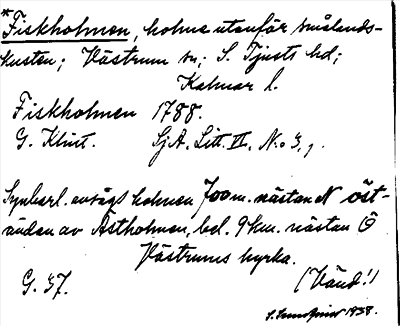 *Fiskholmen, holme utanför smålands-
kusten; Västrum sn; S. Tjusts hd;
Kalmar l.
Fiskholmen 1788.
G. Klint. SjA. Litt. II, N:o 3,.
Synbarl. avsågs holmen 700 m. nästan N öst-
ändan av Ästholmen, bel. 9 km. nästan Ö
Västrums kyrka.
G. 37. (Vänd!)
1938.